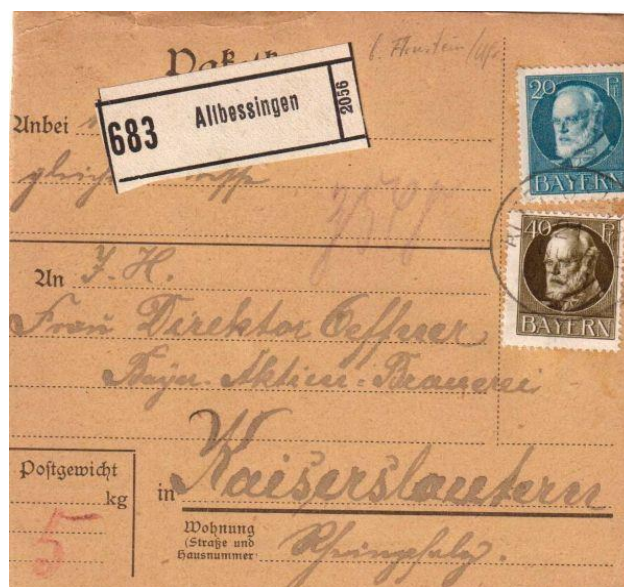 Paketk
b. Arnstein/Ufr
Allbessingen
683
2056
Anbei
gleicher
20 Pf
BAYERN
40 Pf
BAYERN
An J. H.
Frau Direktor Oeffner
Bayr. Aktien-Brauerei
Postgewicht
kg
5
in Kaiserslautern
Wohnung
(Straße und
Hausnummer
Rheinpfalz.